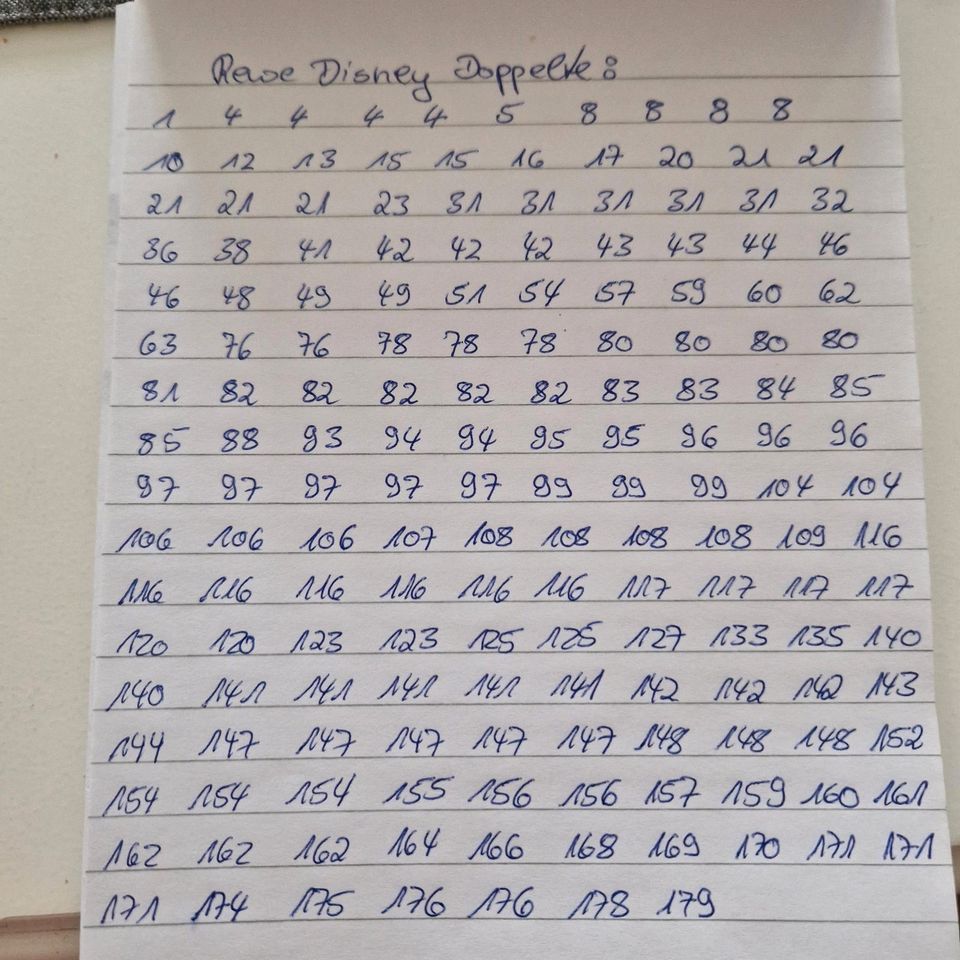 Rewe Disney Doppelte:
1 4 4 4 4 5 8 8 8 8
10 12 13 15 15 16 17 20 21 21
21 21 21 23 31 31 31 31 31 32
36 38 41 42 42 42 43 43 44 46
46 48 49 49 51 54 57 59 60 62
63 76 76 78 78 78 80 80 80 80
81 82 82 82 82 82 83 83 84 85
85 88 93 94 94 95 95 96 96 96
97 97 97 97 97 99 99 99 104 104
106 106 106 107 108 108 108 108 109 116
116 116 116 116 116 116 117 117 117 117
120 120 123 123 125 125 127 133 135 140
140 141 141 141 141 141 142 142 142 143
144 147 147 147 147 147 148 148 148 152
154 154 154 155 156 156 157 159 160 161
162 162 162 164 166 168 169 170 171 171
171 174 175 176 176 178 179